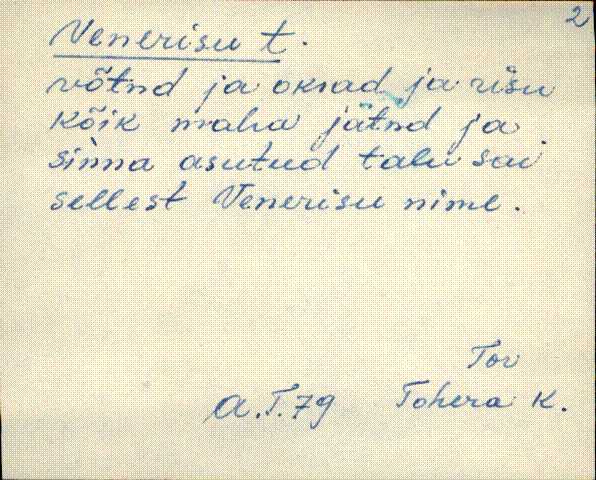 2
Venerisu t.
võtnd ja oksad ja risu
kõik maha jätnd ja
sinna asutud talu sai
sellest Venerisu nime.
Tor
A.T.79 Tohera K.